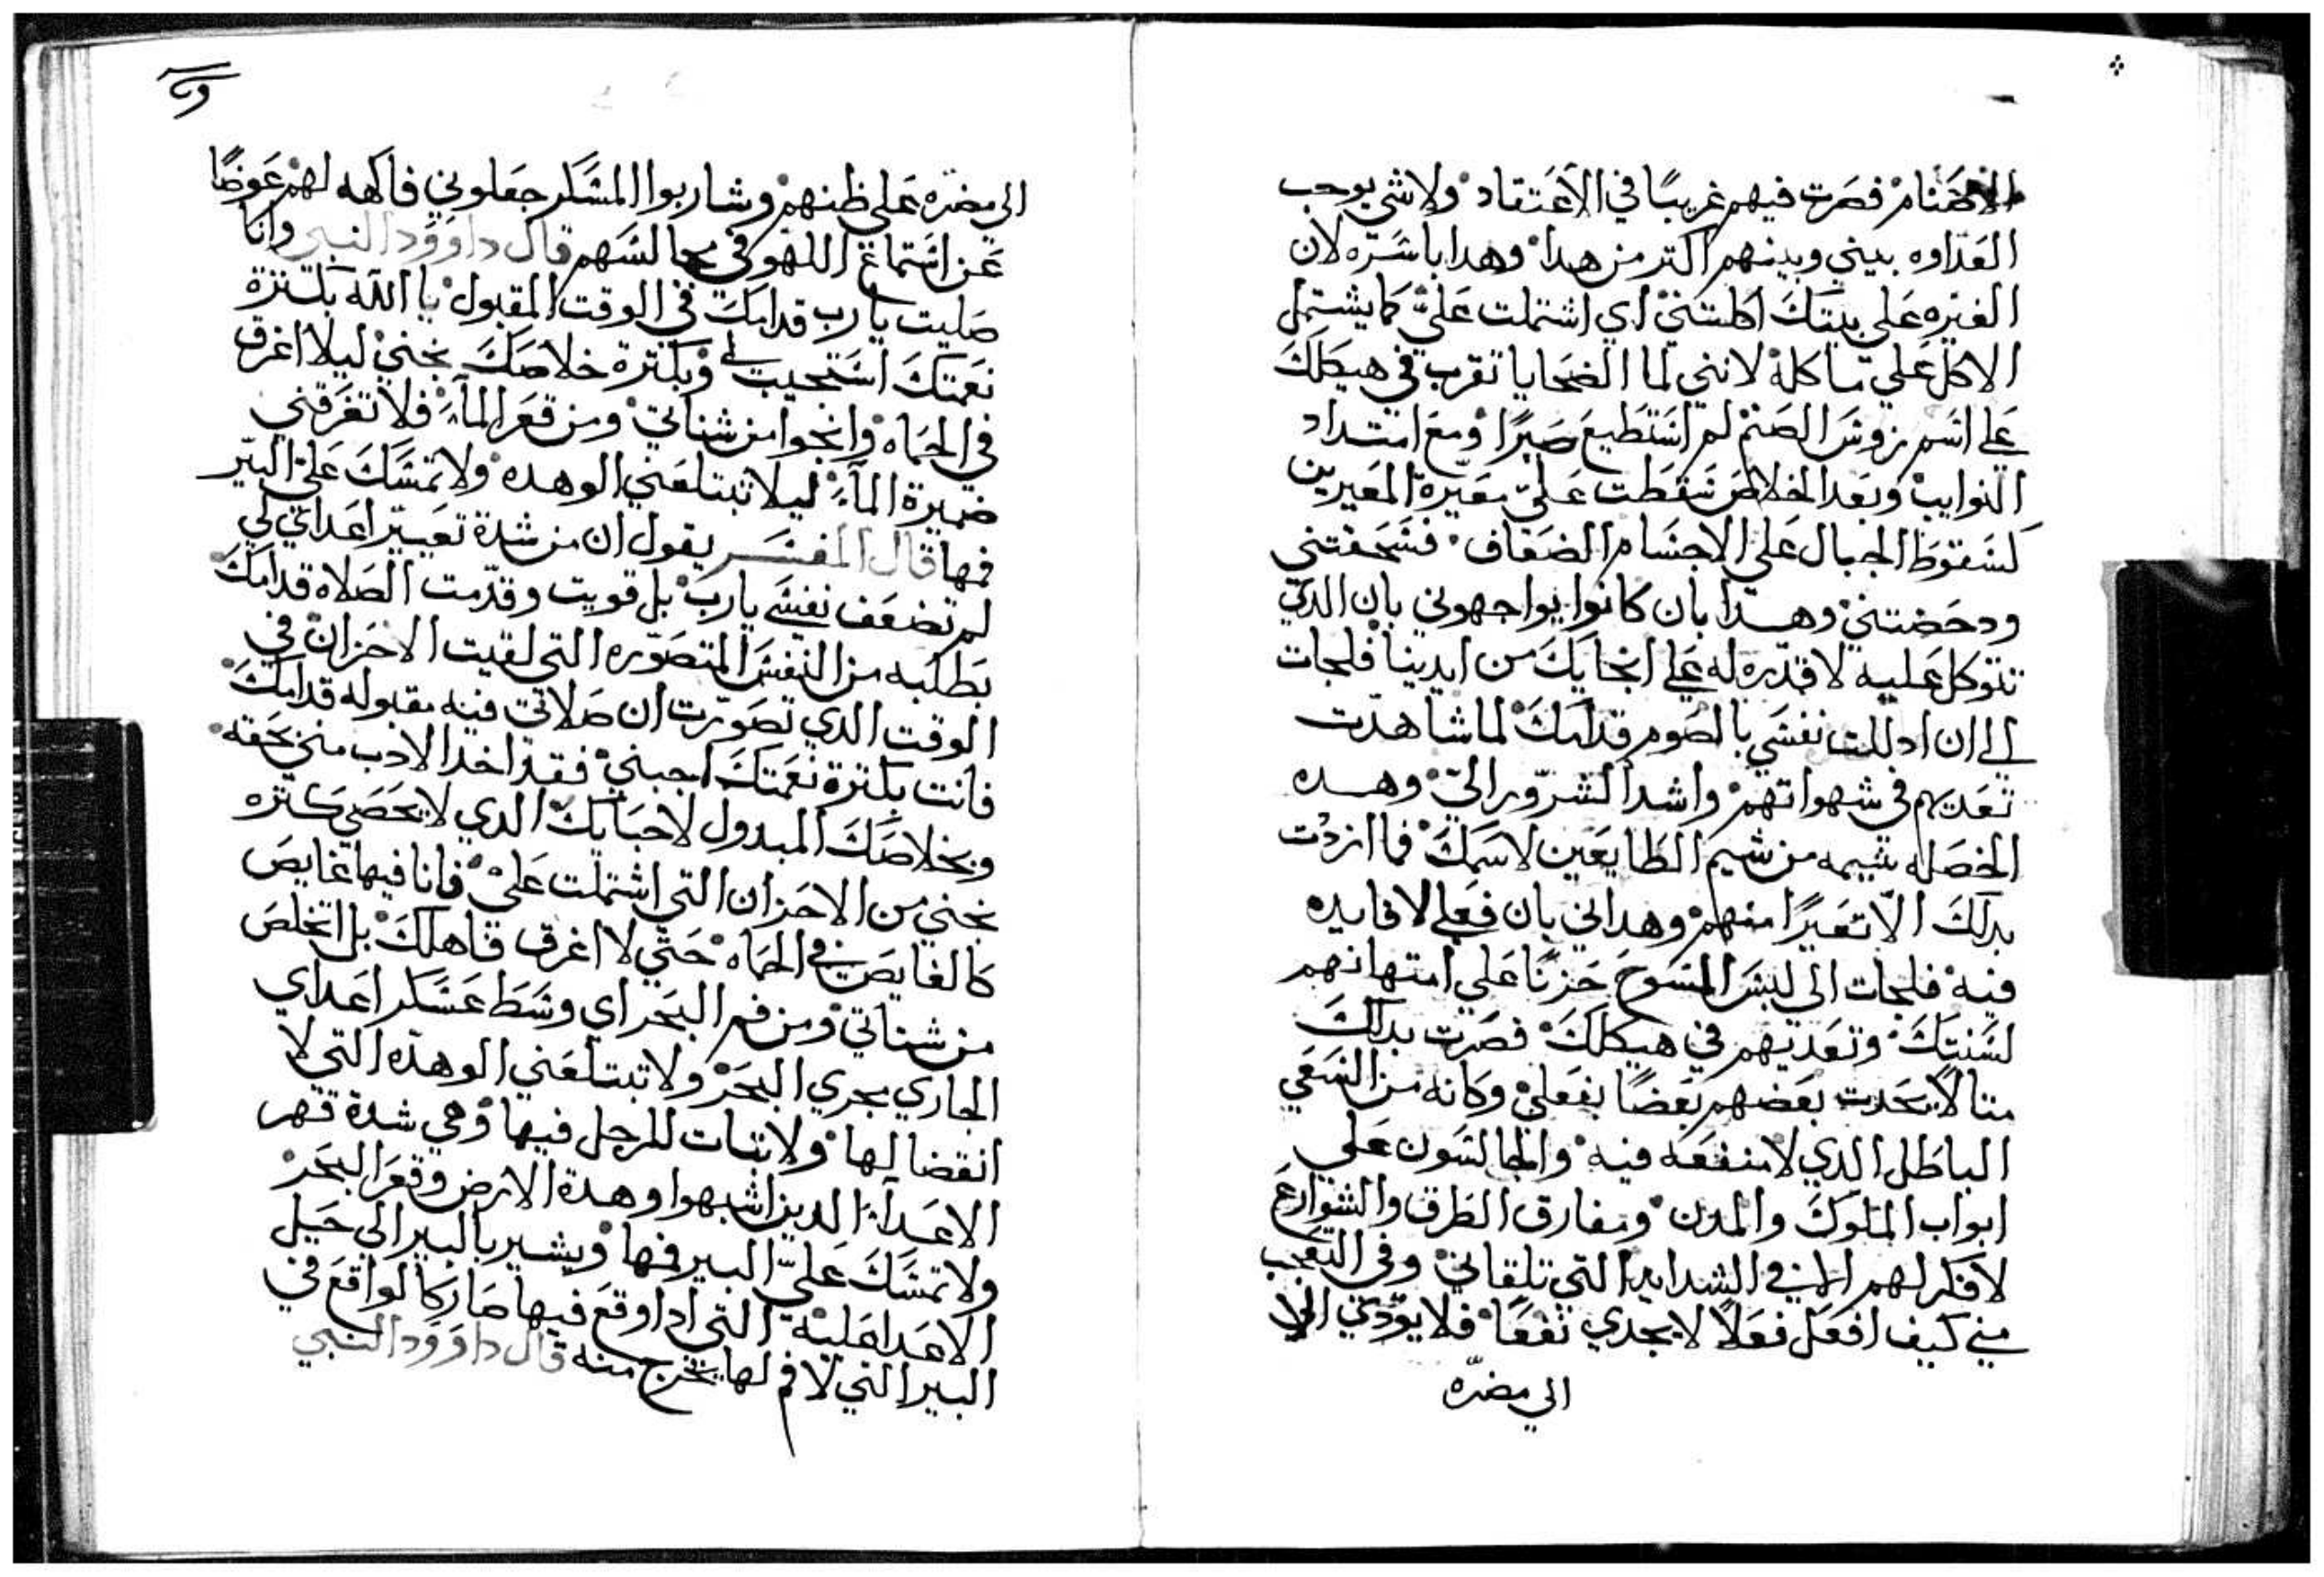 الاصنام فصرت فيهم غريبًا في الاعتقاد ولا شي يوجب
العداوه بيني وبينهم اكتر من هدا وهدا باسره لان
الغيره على بيتك اكلتني اي اشتملت عليّ كما يشتمل
الاكل علي ماكله لانني لما الضحايا تقرب في هيكلك
على اسم نروس الصنم لم استطيع صبرًا ومع امتداد
النوايب وبعد الخلاص سقطت عليّ معيّرة المعيرين
كسقوط الجبال على الاجسام الضعاف فسحقتني
ودحضتني وهدا بان كانوا يواجهوني بان الدي
تتوكل عليه لا قدره له على انجايك من ايدينا فلجات
الى ان ادللت نفسي بالصوم قدامك لما شاهدت
تعديهم في شهواتهم واشد الشرور اليّ وهده
الخصله شيمه من شيم الطايعين لاسمك فما ازددت
بدلك الّا تعيرًا منهم وهداني بان فعلي لا فايده
فيه فلجات الى لبس المسوح حزنًا على امتهانهم
لسنتك وتعديهم في هيكلك فصرت بدلك
متالًا يحدت بعضهم بعضًا بفعلي وكانه من السعي
الباطل الدي لا منفعه فيه والجالسون على
ابواب الملوك والمدن ومفارق الطرق والشوارع
لا فكر لهم الا في الشدايد التي تلقاني وفي التعجب
مني كيف افعل فعلًا لا يجدي نفعًا فلا يودي الا
الي مضرّه
الي مضره على ظنهم وشاربوا المسكر جعلوني فاكهه لهم عوضًا
عن استماع اللهو في مجالسهم قال داوود النبي وانا
صليت يا رب قدامك في الوقت المقبول يا الله بكترة
نعمتك استجيب لي وبكترة خلاصك نجني ليلا اغرق
في الحماه وانجوا من شناتي ومن قعر الماء فلا تغرقني
ضميرة الماء ليلا تبتلعني الوهده ولا تمسك عليّ البير
فمها قال المفسر يقول ان من شدة تعيير اعداي لي
لم تضعف نفسي يا رب بل قويت وقدّمت الصلاه قدامك
بطلبه من النفس المتصوّره التي لقيت الاحزان في
الوقت الدي تصوّرت ان صلاتي فيه مقبوله قدامك
فانت بكترة نعمتك اجبني فقد اخد الادب مني بحقه
وبخلاصك المبدول لاحبايك الدي لا يحصي كتره
نجني من الاحزان التي اشتملت علي فانا فيها غايص
كالغايص في الحماه حتي لا اغرق فاهلك بل اتخلص
من شناتي ومن قعر البحر اي وسط عسكر اعداي
الجاري مجري البحر ولا تبتلعني الوهده التي لا
انقضا لها ولا تبات للرجل فيها وهي شدة قهر
الاعداء الدين اشبهوا وهدة الارض وقعر البحر
ولا تمسك عليّ البير فمها ويشير بالبير الي حيل
الاعدا عليه التي ادا وقع فيها صار كالواقع في
البير التي لا فم لها يخرج منه قال داوود النبي